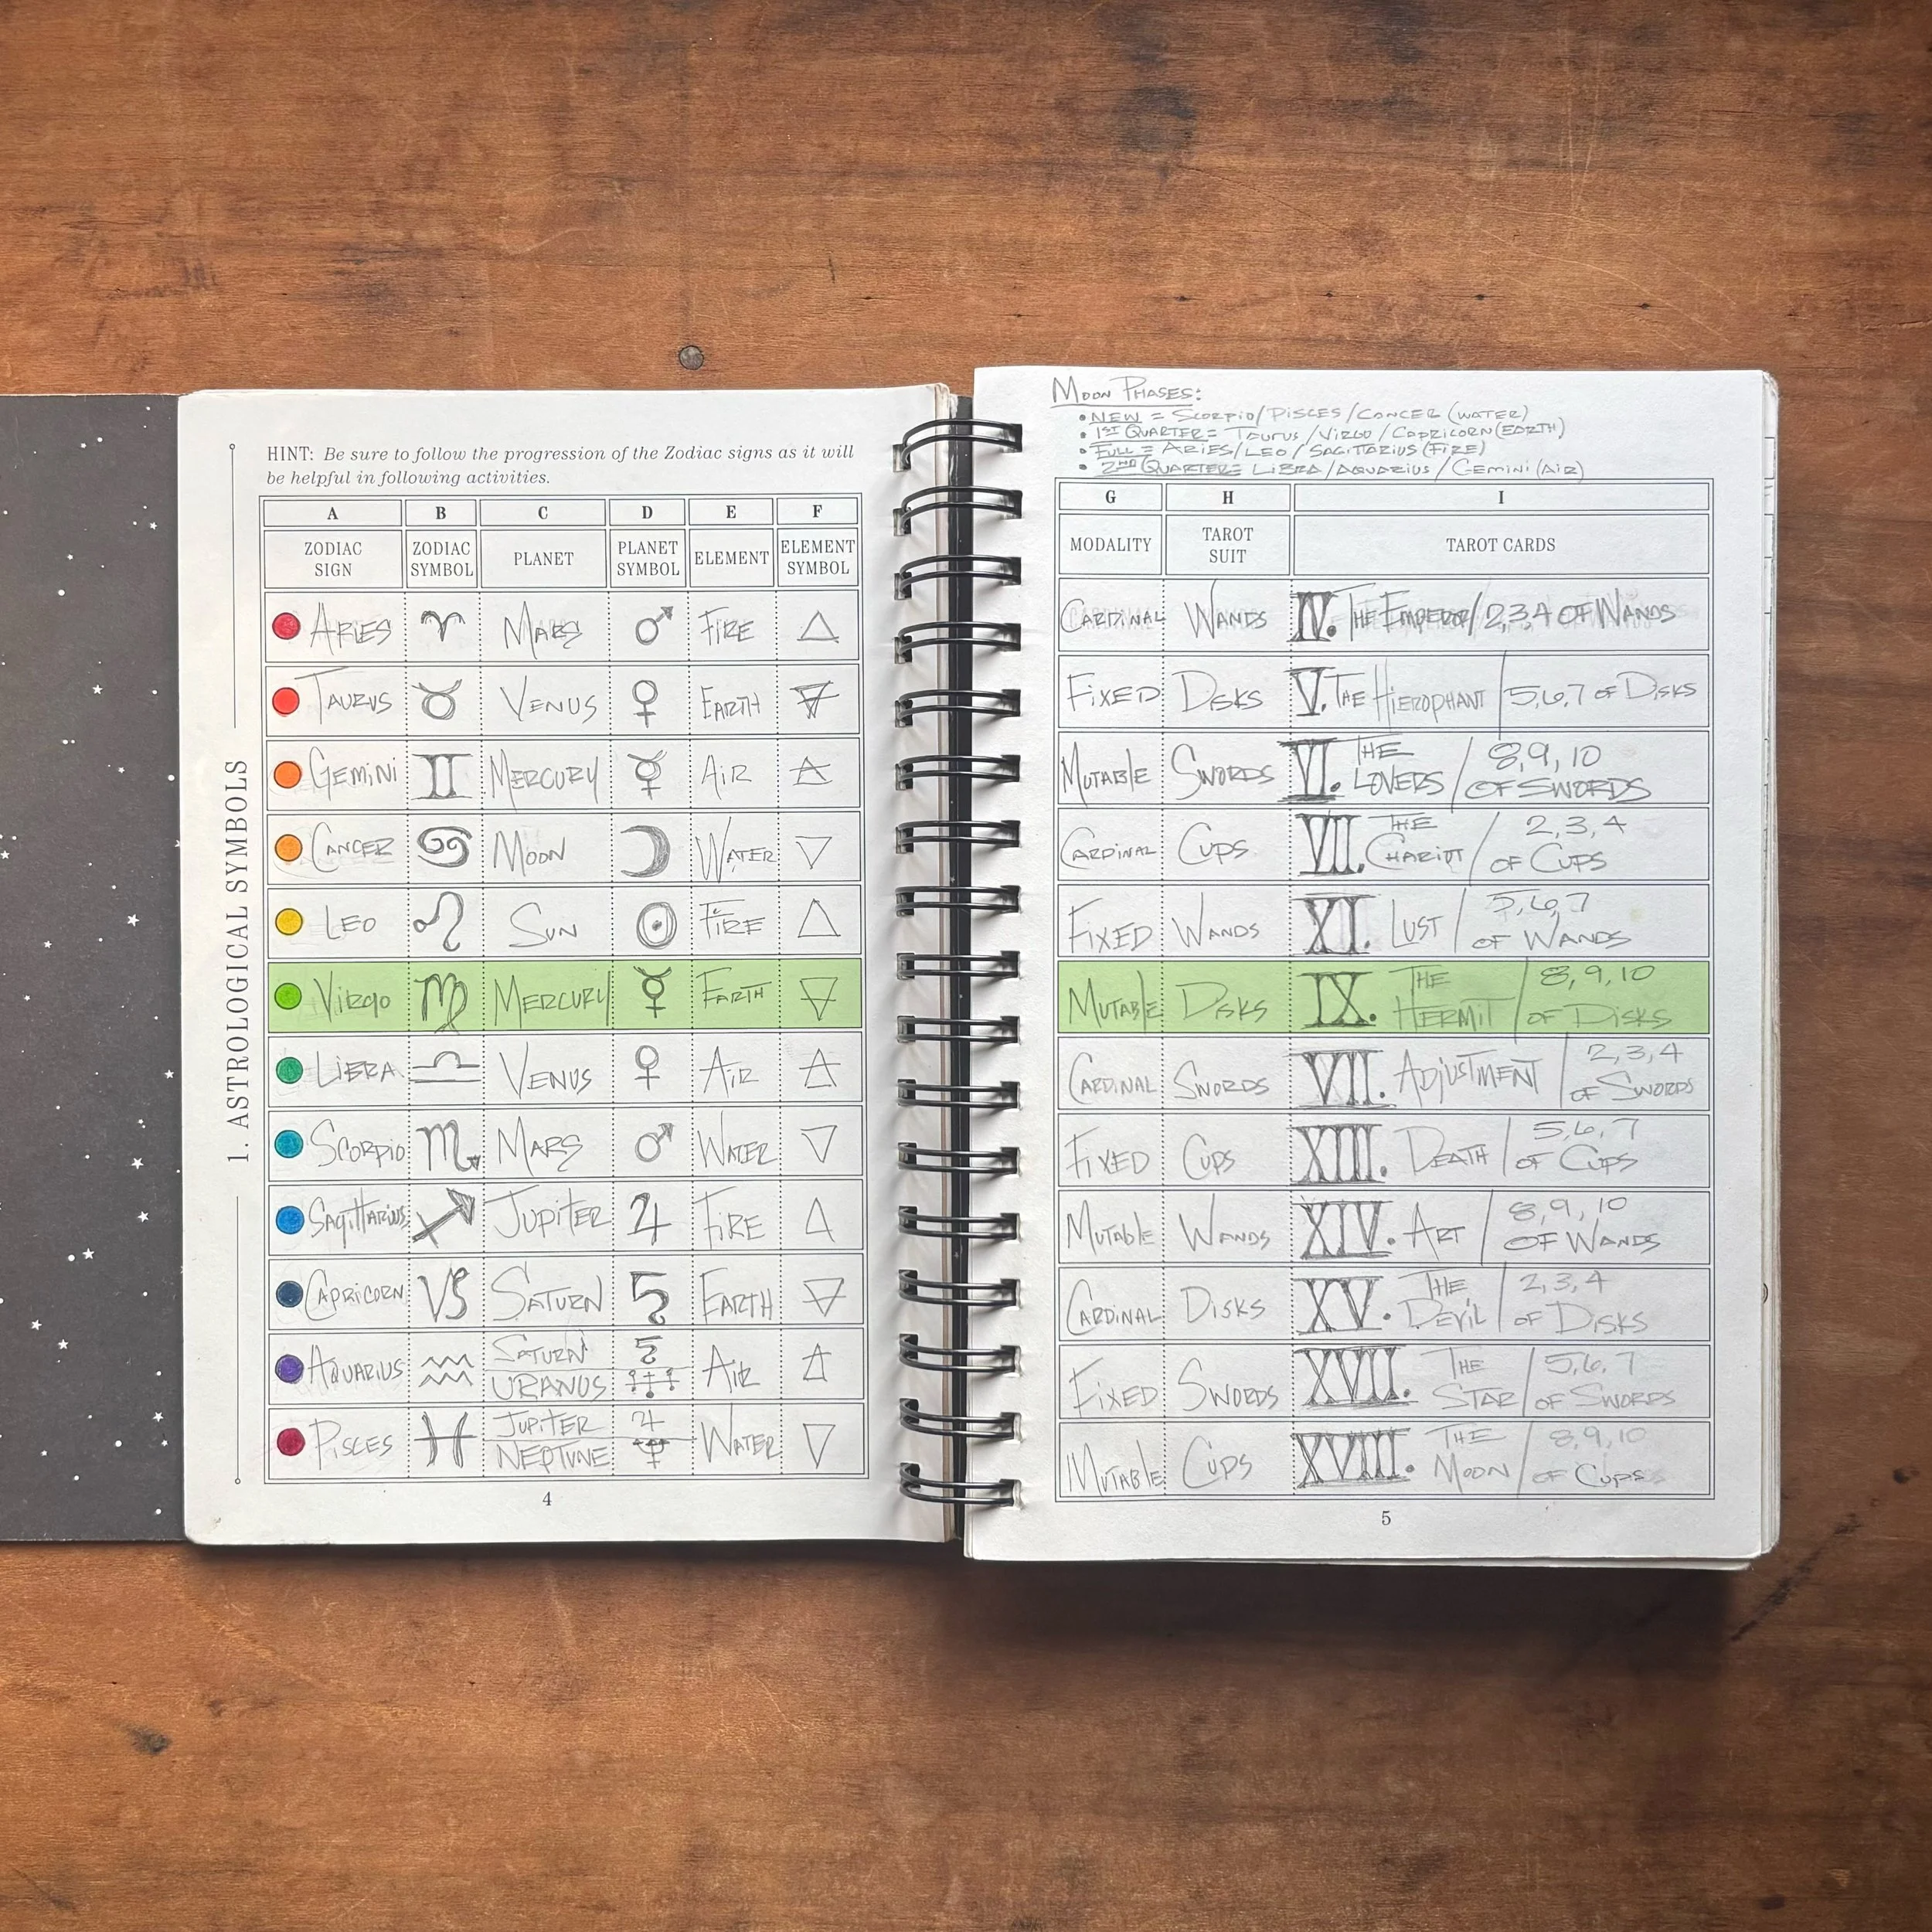 1. ASTROLOGICAL SYMBOLS
HINT: Be sure to follow the progression of the Zodiac signs as it will
be helpful in following activities.
A B C D E F
ZODIAC SIGN ZODIAC SYMBOL PLANET PLANET SYMBOL ELEMENT ELEMENT SYMBOL
ARIES ♈ MARS ♂ FIRE △
TAURUS ♉ VENUS ♀ EARTH 🜃
GEMINI ♊ MERCURY ☿ AIR 🜁
CANCER ♋ MOON ☽ WATER ▽
LEO ♌ SUN ☉ FIRE △
VIRGO ♍ MERCURY ☿ EARTH 🜃
LIBRA ♎ VENUS ♀ AIR 🜁
SCORPIO ♏ MARS ♂ WATER ▽
SAGITTARIUS ♐ JUPITER ♃ FIRE △
CAPRICORN ♑ SATURN ♄ EARTH 🜃
AQUARIUS ♒ SATURN URANUS ♄ ♅ AIR 🜁
PISCES ♓ JUPITER NEPTUNE ♃ ♆ WATER ▽
4
MOON PHASES:
• NEW = SCORPIO/PISCES/CANCER (WATER)
• 1ST QUARTER = TAURUS/VIRGO/CAPRICORN (EARTH)
• FULL = ARIES/LEO/SAGITTARIUS (FIRE)
• 2ND QUARTER = LIBRA/AQUARIUS/GEMINI (AIR)
G H I
MODALITY TAROT SUIT TAROT CARDS
CARDINAL WANDS IV. THE EMPEROR/2,3,4 OF WANDS
FIXED DISKS V. THE HIEROPHANT/5,6,7 OF DISKS
MUTABLE SWORDS VI. THE LOVERS/8, 9, 10 OF SWORDS
CARDINAL CUPS VII. THE CHARIOT/2, 3, 4 OF CUPS
FIXED WANDS XI. LUST/5, 6, 7 OF WANDS
MUTABLE DISKS IX. THE HERMIT/8, 9, 10 OF DISKS
CARDINAL SWORDS VII. ADJUSTMENT/2, 3, 4 OF SWORDS
FIXED CUPS XIII. DEATH/5, 6, 7 OF CUPS
MUTABLE WANDS XIV. ART/8, 9, 10 OF WANDS
CARDINAL DISKS XV. THE DEVIL/2, 3, 4 OF DISKS
FIXED SWORDS XVII. THE STAR/5, 6, 7 OF SWORDS
MUTABLE CUPS XVIII. THE MOON/8, 9, 10 OF CUPS
5